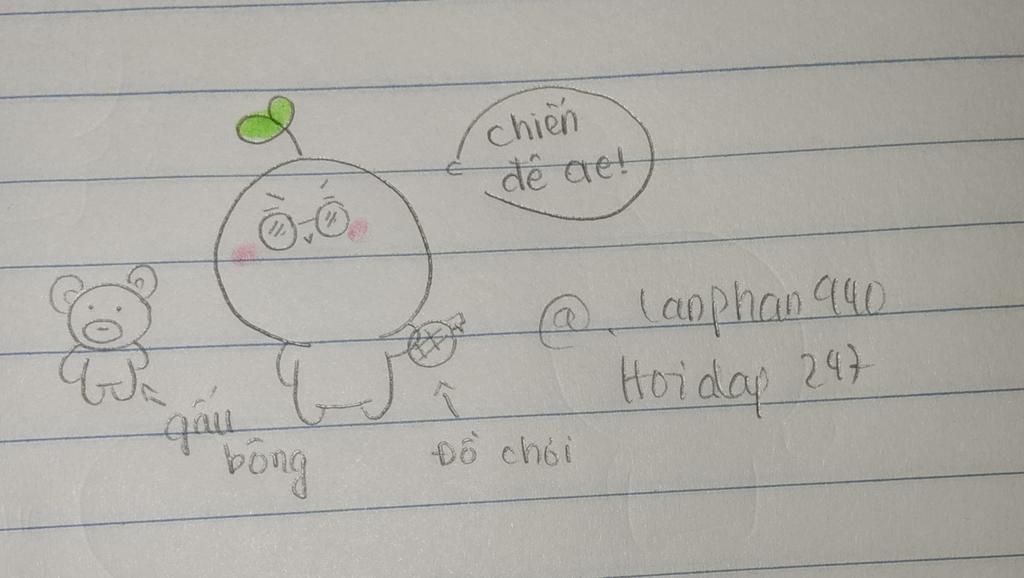 chiến
đê ae!
@. lanphan940
Hoidap 247
gấu
bông
Đồ chơi